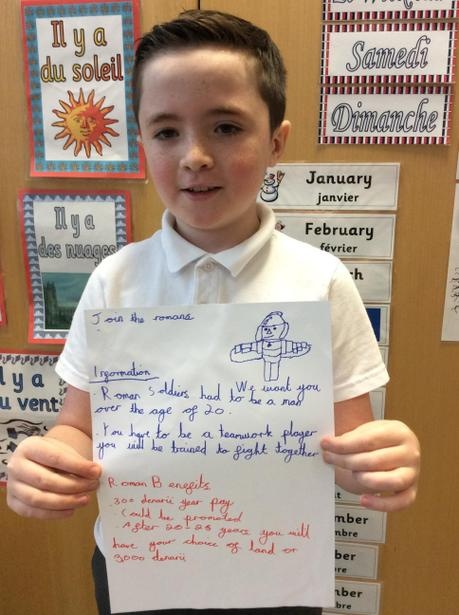 Il y a
du soleil
Samedi
Dimanche
Il y a
des nuages
January
janvier
February
février
Il y a
du vent
Join the romans
Information
We want you
• Roman Soldiers had to be a man
over the age of 20.
• You have to be a teamwork player
you will be trained to fight together
Roman Benefits
300 denarii year pay
• Could be promoted
• After 20-25 years you will
have your choice of land or
3000 denarii
mber
bre
mber
bre